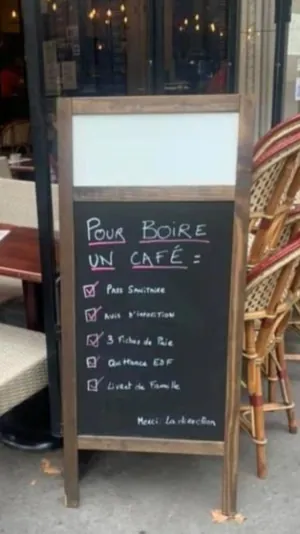 POUR BOIRE
UN CAFÉ :
Pass Sanitaire
Avis d'imposition
3 Fiches de Paie
Quittance EDF
Livret de Famille
Merci. La direction